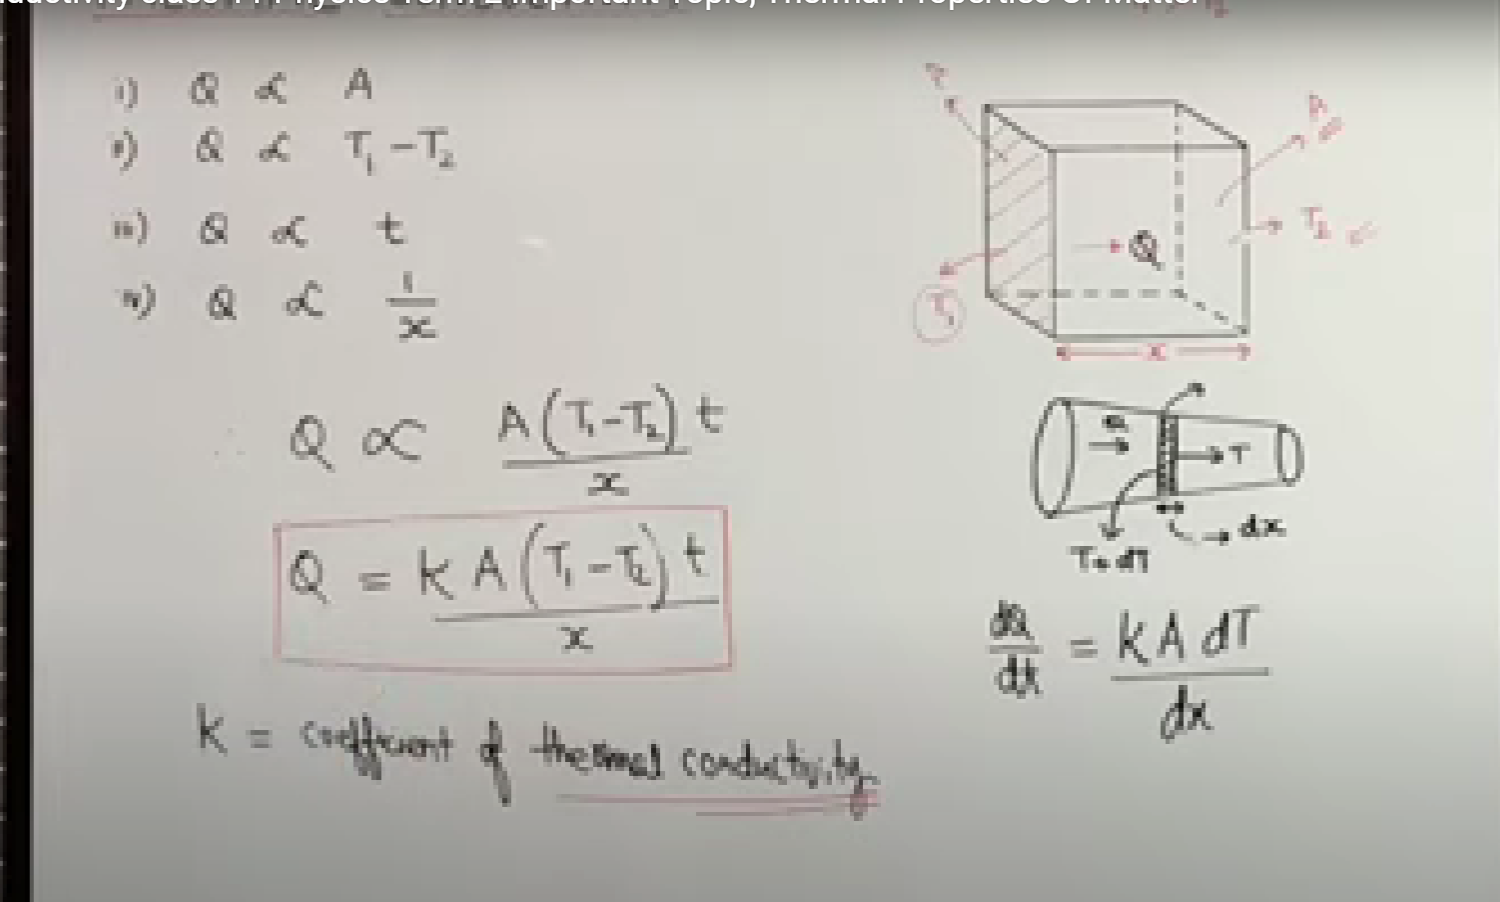 Physics Term 2 Important Topic, Thermal Properties of Matter
i) Q ∝ A
ii) Q ∝ T₁ - T₂
iii) Q ∝ t
iv) Q ∝ 1/x
∴ Q ∝ A(T₁-T₂)t/x
Q = KA(T₁-T₂)t/x
K = coefficient of thermal conductivity
P
A
T₂
Q
T₁
x
Q
T
dx
T+dT
dQ/dt = KA dT/dx